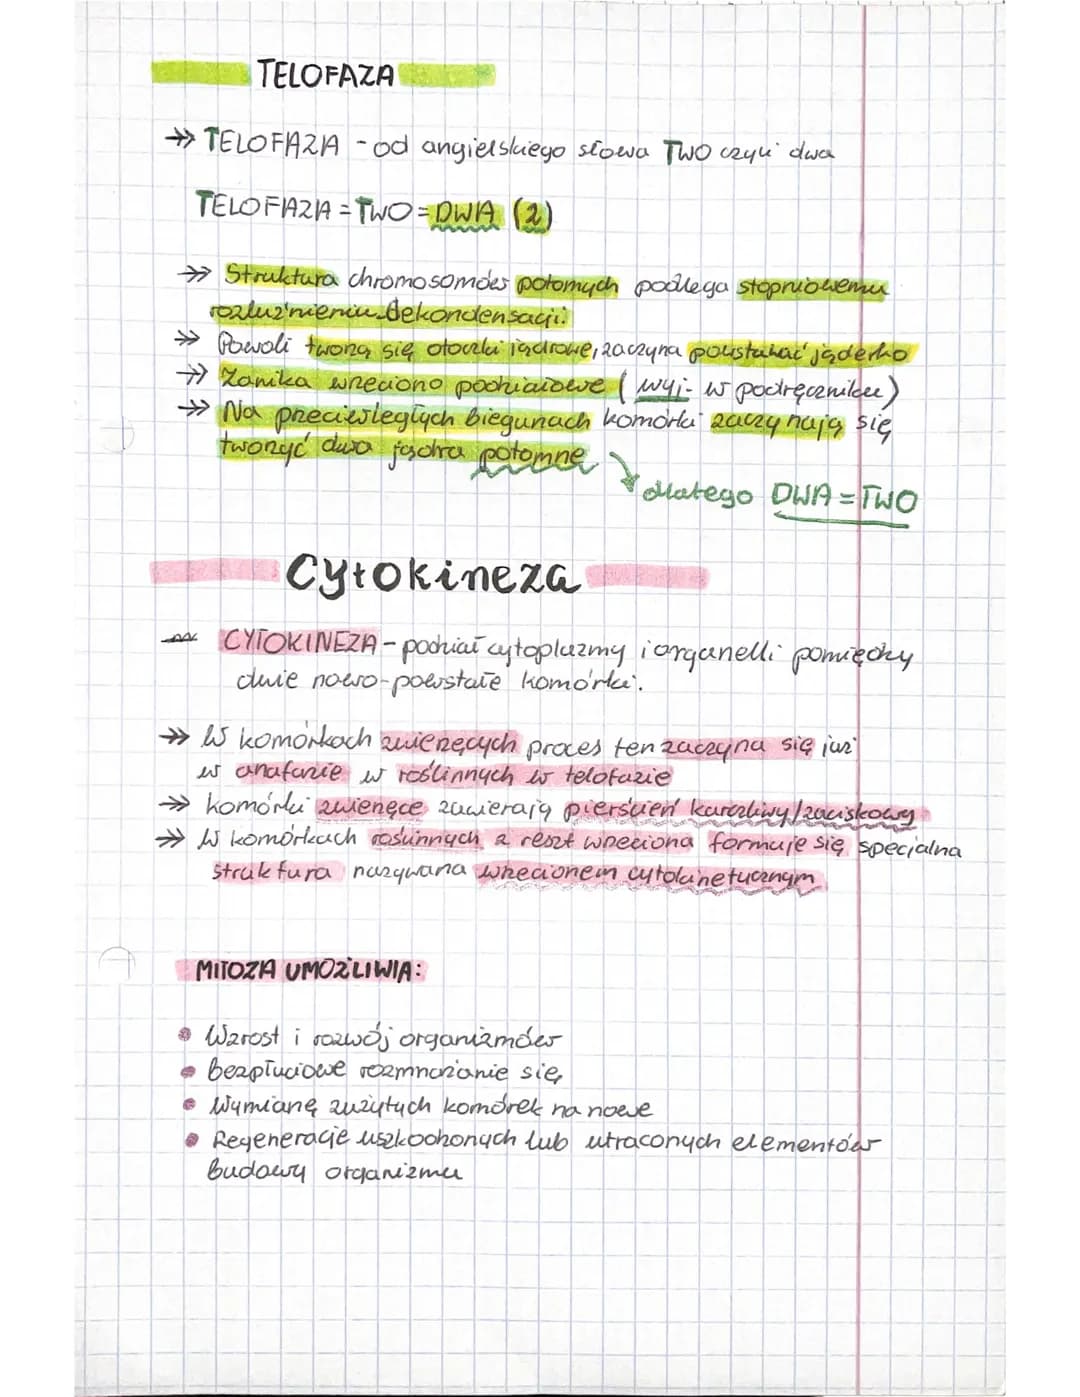 TELOFAZA
→ TELOFAZA - od angielskiego słowa TWO czyli dwa
TELOFAZA = TWO = DWA (2)
→ Struktura chromosomów potomych podlega stopniowemu
rozluźnieniu dekondensacji.
→ Powoli tworzą się otoczki jądrowe, zaczyna powstawać jąderko
→ Zanika wrzeciono podziałowe ( wyj. w podręczniku)
→ Na przeciwległych biegunach komórki zaczynają się
tworzyć dwa jądra potomne
dlatego DWA = TWO
Cytokineza
CYTOKINEZA - podział cytoplazmy i organelli pomiędzy
dwie nowo-powstałe komórki.
→ W komórkach zwierzęcych proces ten zaczyna się już
w anafazie w roślinnych w telofazie
→ komórki zwierzęce zawierają pierścień kurczliwy/zaciskowy
→ W komórkach roślinnych z reszt wrzeciona formuje się specjalna
struktura nazywana wrzecionem cytokinetycznym
MITOZA UMOŻLIWIA:
• Wzrost i rozwój organizmów
• bezpłciowe rozmnażanie się
• Wymianę zużytych komórek na nowe
• Regenerację uszkodzonych lub utraconych elementów
budowy organizmu